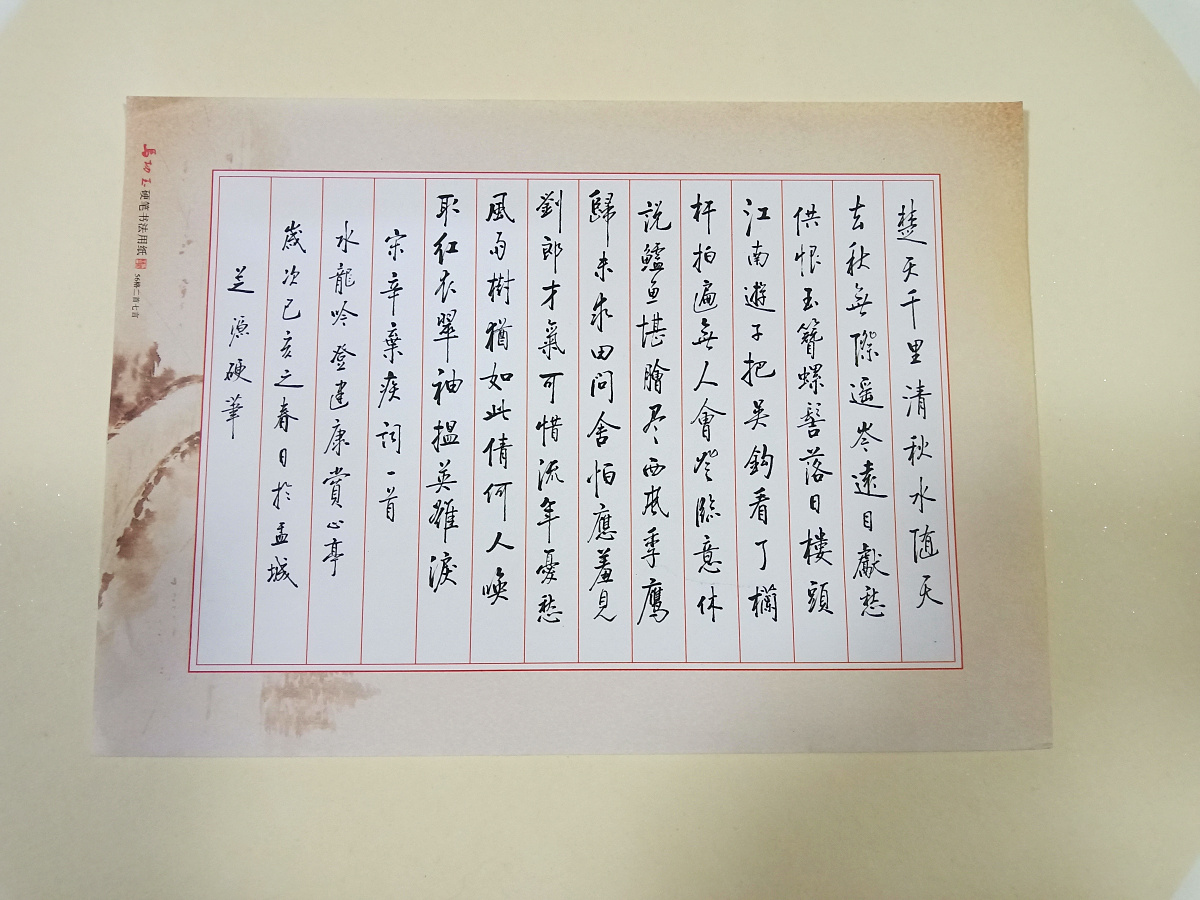 楚天千里清秋水随天
去秋無際遥岑遠目獻愁
供恨玉簪螺髻落日樓頭
江南遊子把吴鈎看了欄
杆拍遍無人會登臨意休
說鱸鱼堪膾尽西风季鹰
歸未求田問舍怕應羞見
劉郎才氣可惜流年憂愁
風雨樹猶如此倩何人唤
取红衣翠袖揾英雄淚
宋辛棄疾詞一首
水龍吟登建康賞心亭
歲次己亥之春日於盂城
芝源硬筆
硬笔书法用纸
56格二首七言